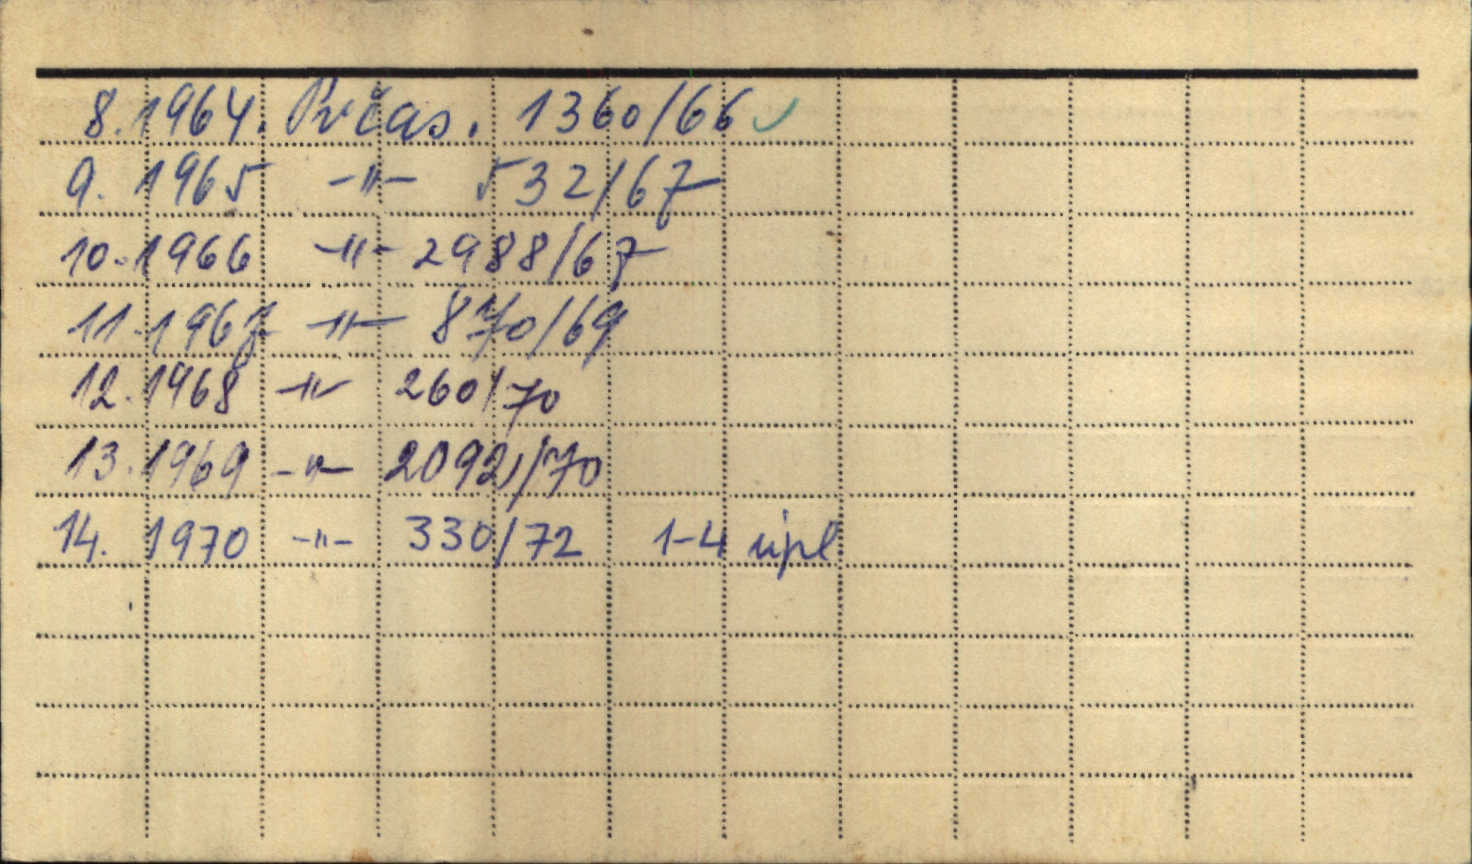 8. 1964. Prčas. 1360/66 ✓
9. 1965 -"- 532/67
10. 1966 -"- 2988/67
11. 1967 -"- 870/69
12. 1968 -"- 260/70
13. 1969 -"- 2092/70
14. 1970 -"- 330/72 1-4 úpl